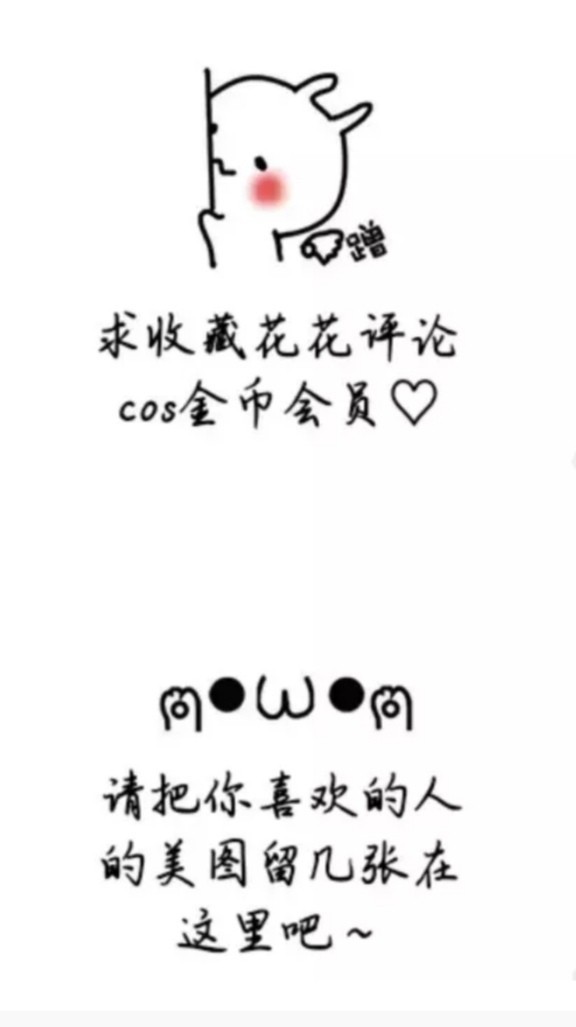 蹭
求收藏花花评论
cos金币会员♡
ฅ●ω●ฅ
请把你喜欢的人
的美图留几张在
这里吧~